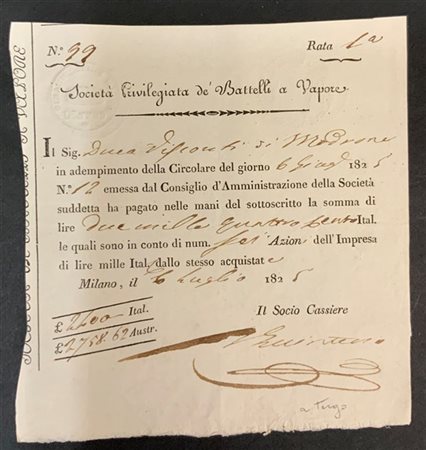 N.° 99 Rata 1a
Società Privilegiata de' Battelli a Vapore
Il Sig. Duca Visconti di Modrone
in adempimento della Circolare del giorno 6 Giug.° 1825
N.° 12 emessa dal Consiglio d'Amministrazione della Società
suddetta ha pagato nelle mani del sottoscritto la somma di
lire due mille quattro cento Ital.
le quali sono in conto di num. sei Azioni dell'Impresa
di lire mille Ital. dallo stesso acquistate
Milano, il 6 Luglio 1825
£ 2400 Ital.
£ 2758.62 Austr.
Il Socio Cassiere
a tergo